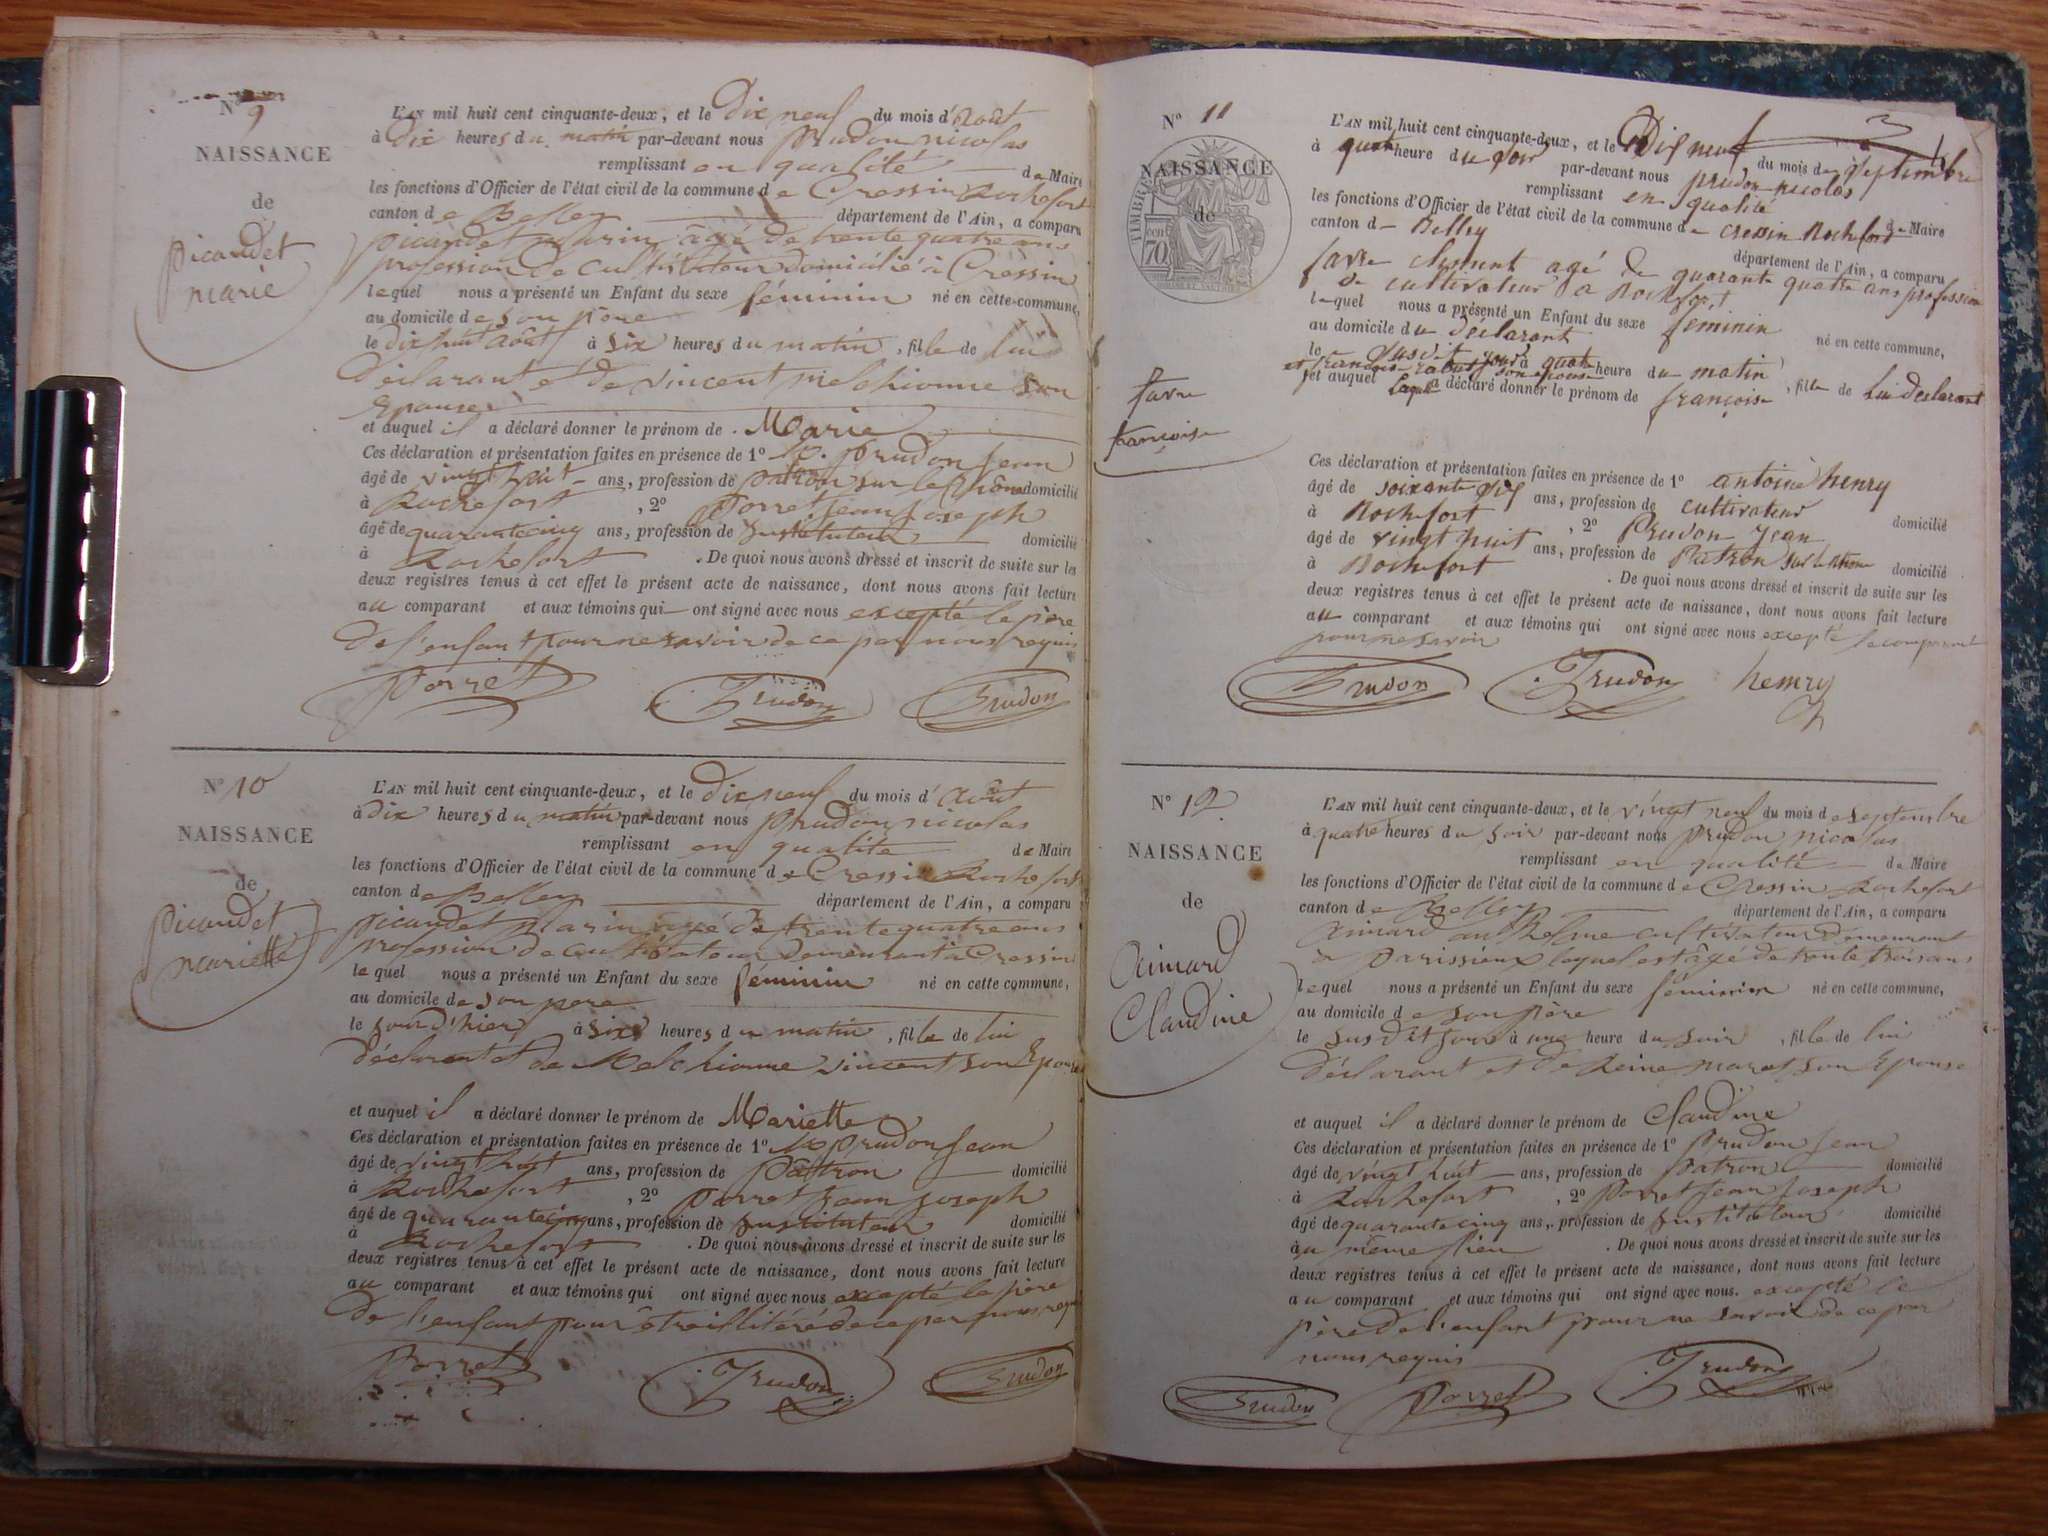 N° 9
NAISSANCE
de
Picaudet
marie
L'AN mil huit cent cinquante-deux, et le Dix neuf du mois d'Août
à Dix heures du matin par-devant nous Prudon nicolas
remplissant en qualité de Maire
les fonctions d'Officier de l'état civil de la commune de Cressin Rochefort
canton de Belley département de l'Ain, a comparu
Picaudet Marin âgé de trente quatre ans
profession de cultivateur domicilié à Cressin
lequel nous a présenté un Enfant du sexe féminin né en cette commune,
au domicile de son père
le dix huit août à six heures du matin, fille de lui
Déclarant et de vincent melchionne son
Epouse
et auquel il a déclaré donner le prénom de Marie
Ces déclaration et présentation faites en présence de 1° Prudon Jean
âgé de vingt huit ans, profession de patron sur le Rhône domicilié
à Rochefort, 2° Porret Jean Joseph
âgé de quarante cinq ans, profession de Instituteur domicilié
à Rochefort. De quoi nous avons dressé et inscrit de suite sur les
deux registres tenus à cet effet le présent acte de naissance, dont nous avons fait lecture
au comparant et aux témoins qui ont signé avec nous excepté le père
de l'enfant pour ne savoir de ce par nous requis
Porret Prudon Prudon
N° 10
NAISSANCE
de
Picaudet
mariette
L'AN mil huit cent cinquante-deux, et le Dix neuf du mois d'Août
à dix heures du matin par-devant nous Prudon nicolas
remplissant en qualité de Maire
les fonctions d'Officier de l'état civil de la commune de Cressin Rochefort
canton de Belley département de l'Ain, a comparu
Picaudet Marin âgé de trente quatre ans
profession de cultivateur demeurant à Cressin
lequel nous a présenté un Enfant du sexe féminin né en cette commune,
au domicile de son père
le jour d'hier à six heures du matin, fille de lui
déclarant et de Melchionne vincent son Epouse
et auquel il a déclaré donner le prénom de Mariette
Ces déclaration et présentation faites en présence de 1° Prudon Jean
âgé de vingt huit ans, profession de Pâtron domicilié
à Rochefort, 2° Porret Jean Joseph
âgé de quarante cinq ans, profession de Instituteur domicilié
à Rochefort. De quoi nous avons dressé et inscrit de suite sur les
deux registres tenus à cet effet le présent acte de naissance, dont nous avons fait lecture
au comparant et aux témoins qui ont signé avec nous excepté le père
de l'enfant pour être illitéré de ce par nous requis
Porret Prudon Prudon
N° 11
NAISSANCE
de
TIMBRE
70
favre
françoise
L'AN mil huit cent cinquante-deux, et le Dix neuf du mois de Septembre
à quatre heure du soir par-devant nous prudon nicolas
remplissant en qualité de Maire
les fonctions d'Officier de l'état civil de la commune de cressin Rochefort
canton de Belley département de l'Ain, a comparu
favre clement agé de quarante quatre ans profession
de cultivateur a Rochefort
lequel nous a présenté un Enfant du sexe féminin né en cette commune,
au domicile du déclarant
le susdit jour à quatre heure du matin, fille de lui déclarant
et françoise son épouse
et auquel a déclaré donner le prénom de françoise
Ces déclaration et présentation faites en présence de 1° antoine henry
âgé de soixante dix ans, profession de cultivateur domicilié
à Rochefort, 2° Prudon Jean
âgé de vingt huit ans, profession de Patron sur le Rhone domicilié
à Rochefort. De quoi nous avons dressé et inscrit de suite sur les
deux registres tenus à cet effet le présent acte de naissance, dont nous avons fait lecture
au comparant et aux témoins qui ont signé avec nous excepté le comparant
pour ne savoir
Prudon Prudon henry
N° 12
NAISSANCE
de
Aimard
Claudine
L'AN mil huit cent cinquante-deux, et le vingt neuf du mois de septembre
à quatre heures du soir par-devant nous Prudon nicolas
remplissant en qualité de Maire
les fonctions d'Officier de l'état civil de la commune de Cressin Rochefort
canton de Belley département de l'Ain, a comparu
Aimard anthelme cultivateur demeurant
à Parissieux lequel est âgé de trente trois ans
lequel nous a présenté un Enfant du sexe féminin né en cette commune,
au domicile de son père
le susdit jour à une heure du soir, fille de lui
déclarant et de Reine maret son Epouse
et auquel il a déclaré donner le prénom de Claudine
Ces déclaration et présentation faites en présence de 1° Prudon Jean
âgé de vingt huit ans, profession de Patron domicilié
à Rochefort, 2° Porret Jean Joseph
âgé de quarante cinq ans, profession de Instituteur domicilié
au même lieu. De quoi nous avons dressé et inscrit de suite sur les
deux registres tenus à cet effet le présent acte de naissance, dont nous avons fait lecture
au comparant et aux témoins qui ont signé avec nous. excepté le
père de l'enfant pour ne savoir de ce par
nous requis
Prudon Porret Prudon